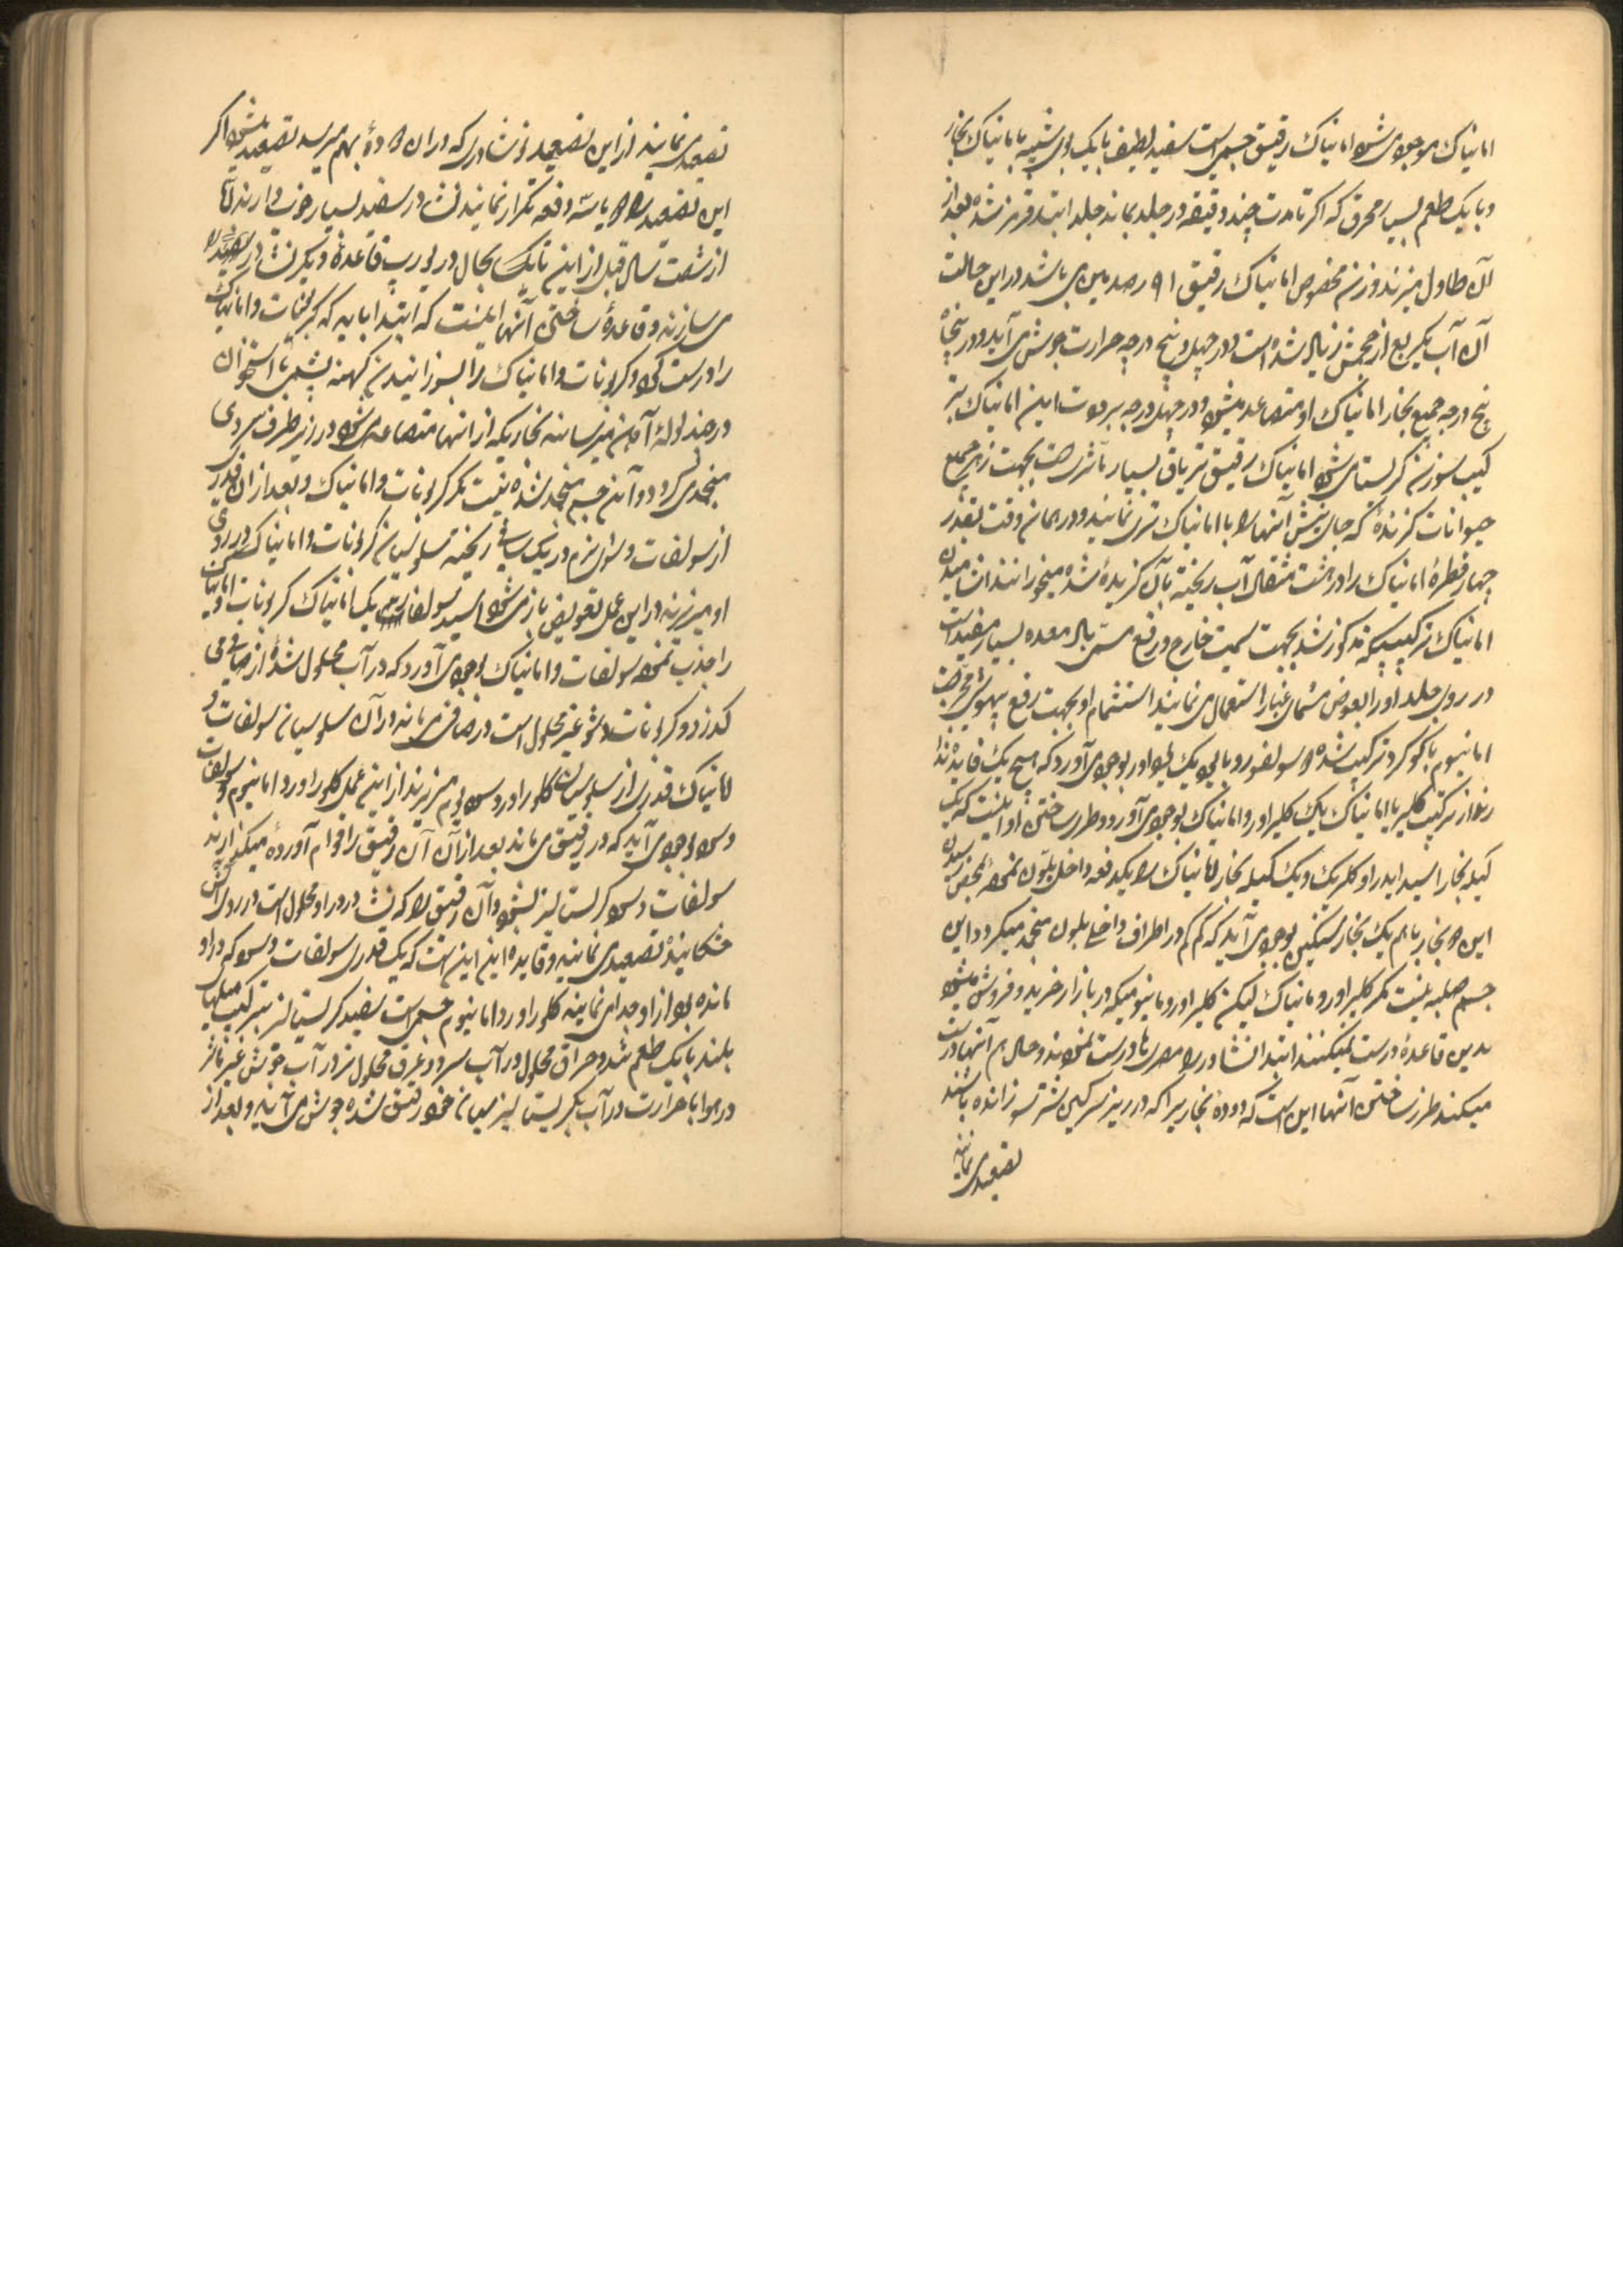 امانیاک موجود می شود امانیاک رقیق جسمی است سفید لطیف با یک بوی شبیه با امانیاک بخار
و با یک طعم بسیار محرق که اکر تا مدت چند دقیقه در جلد بماند جلد ابتدا قرمز شده بعد از
آن طاول میزند وزن مخصوص امانیاک رقیق ۹۱ رصد می باشد در این حالت
آن آب یکربع از حجمش زیاد شده است و در چهل و پنج درجه حرارت جوش می آید و در پنجاه
پنج درجه جمیع بخار امانیاک او متصاعد میشود و در چهل درجه برودت این امانیاک بتر
کیب سوزنی کرستا می شود امانیاک رقیق تریاق بسیار مآثری است بجهت زهر جمیع
حیوانات کزنده که جای نیش آنها را با امانیاک تر می نمایند و در همان وقت بقدر
چهار قطره امانیاک را در هشت مثقال آب ریخته بآن کزیده شده میخورانند
امانیاک بترکیبیکه مذکور شد بجهت سمیت خارج و رفع بسیار مفید است
در روی جلد او را بعوض مشمای غبار استعمال می نمایند استشمام او بجهت رفع بیهوشی مجرب است
امانیوم با کوکرد ترکیب شده سولفورو بوجود می آورد که هیچ یک فایده ندا
رند از ترکیب کلیر با امانیاک یک کلیراور و امانیاک بوجود می آورد و طرز ساختن او اینست که یک
کیله بخار اسید ایدراو کلریک و یک کیله بخار امانیاک را یکدفعه داخل بلون نموده
این دو بخار با هم یک بخار سنکینی بوجود می آید که کم کم در اطراف داخلی بلون منجمد میکردد این
جسم صلبه نیست مکر کلیراور و مانیاک لیکن کلیراور و مانیومیکه در بازار خرید و فروش میشود
بدین قاعده درست نمیکنند ابتدا نشادر را مصریها درست نمودند و حال هم آنها درست
میکنند طرز ساختن آنها این است که دوده بخاریرا که در ریز سرکین شتر سوزانده باشند
تصعید می نمایند
تصعید می نمایند از این تصعید نوشادری که در آن دوده بهم میرسد تصعید میشود اکر
این تصعید را دو یا سه دفعه تکرار نمایند نشادر سفید بسیار خوب دارند
از شصت سال قبل از این تا بحال در یورپ قاعده دیکر نشادر
می سازند و قاعده ساختن آنها اینست که ابتدا باید که کربنات و امانیاک
را درست کرد و کربنات و امانیاک را بسوزانیدن کهنه پشمی یا استخوان
در چند لوله آهن میرسانند بخاریکه از آنها متصاعد می شود در زیر ظرف سردی
منجمد می کردد و آن جسم منجمد شده نیست مکر کربنات و امانیاک و بعد از آن قدری
از سولفات دو شو نرم در یک ریخته سلوسیان کربنات و امانیاک در روی
او میریزند در این عمل تعویض بازی میشود اسید سولفوریک امانیاک کربنات
را جذب نموده سولفات و امانیاک بوجود می آورد که در آب محلول شده از صافی می
کذرد و کربنات دو شو غیر محلول است در صافی می ماند در آن سلوسیان سولفات و
امانیاک قدری از سلوسیان کلوراور و سودیوم میریزند از این عمل کلوراور و امانیوم و سولفات
و سود بوجود می آید که در رقیق می ماند بعد از آن آن رقیق را قوام آورده میکذارند
سولفات و سود کرستالیز بشود و آن رقیق را که نشادر در او محلول است در روی آتش
خشکانیده تصعید می نمایند و فایده این این است که یک قدری سولفات و سود که در او
مانده بود از او جدا می نمایند کلوراور و امانیوم جسمی است سفید کرستالیز بترکیب میلهای
بلند با یک طعم تند و حراق محلول در آب سرد و عرق محلول تر در آب جوش غیر مآثر
در هوا با حرارت در آب کریستالیز میان خود رقیق شده جوش می آید و بعد از